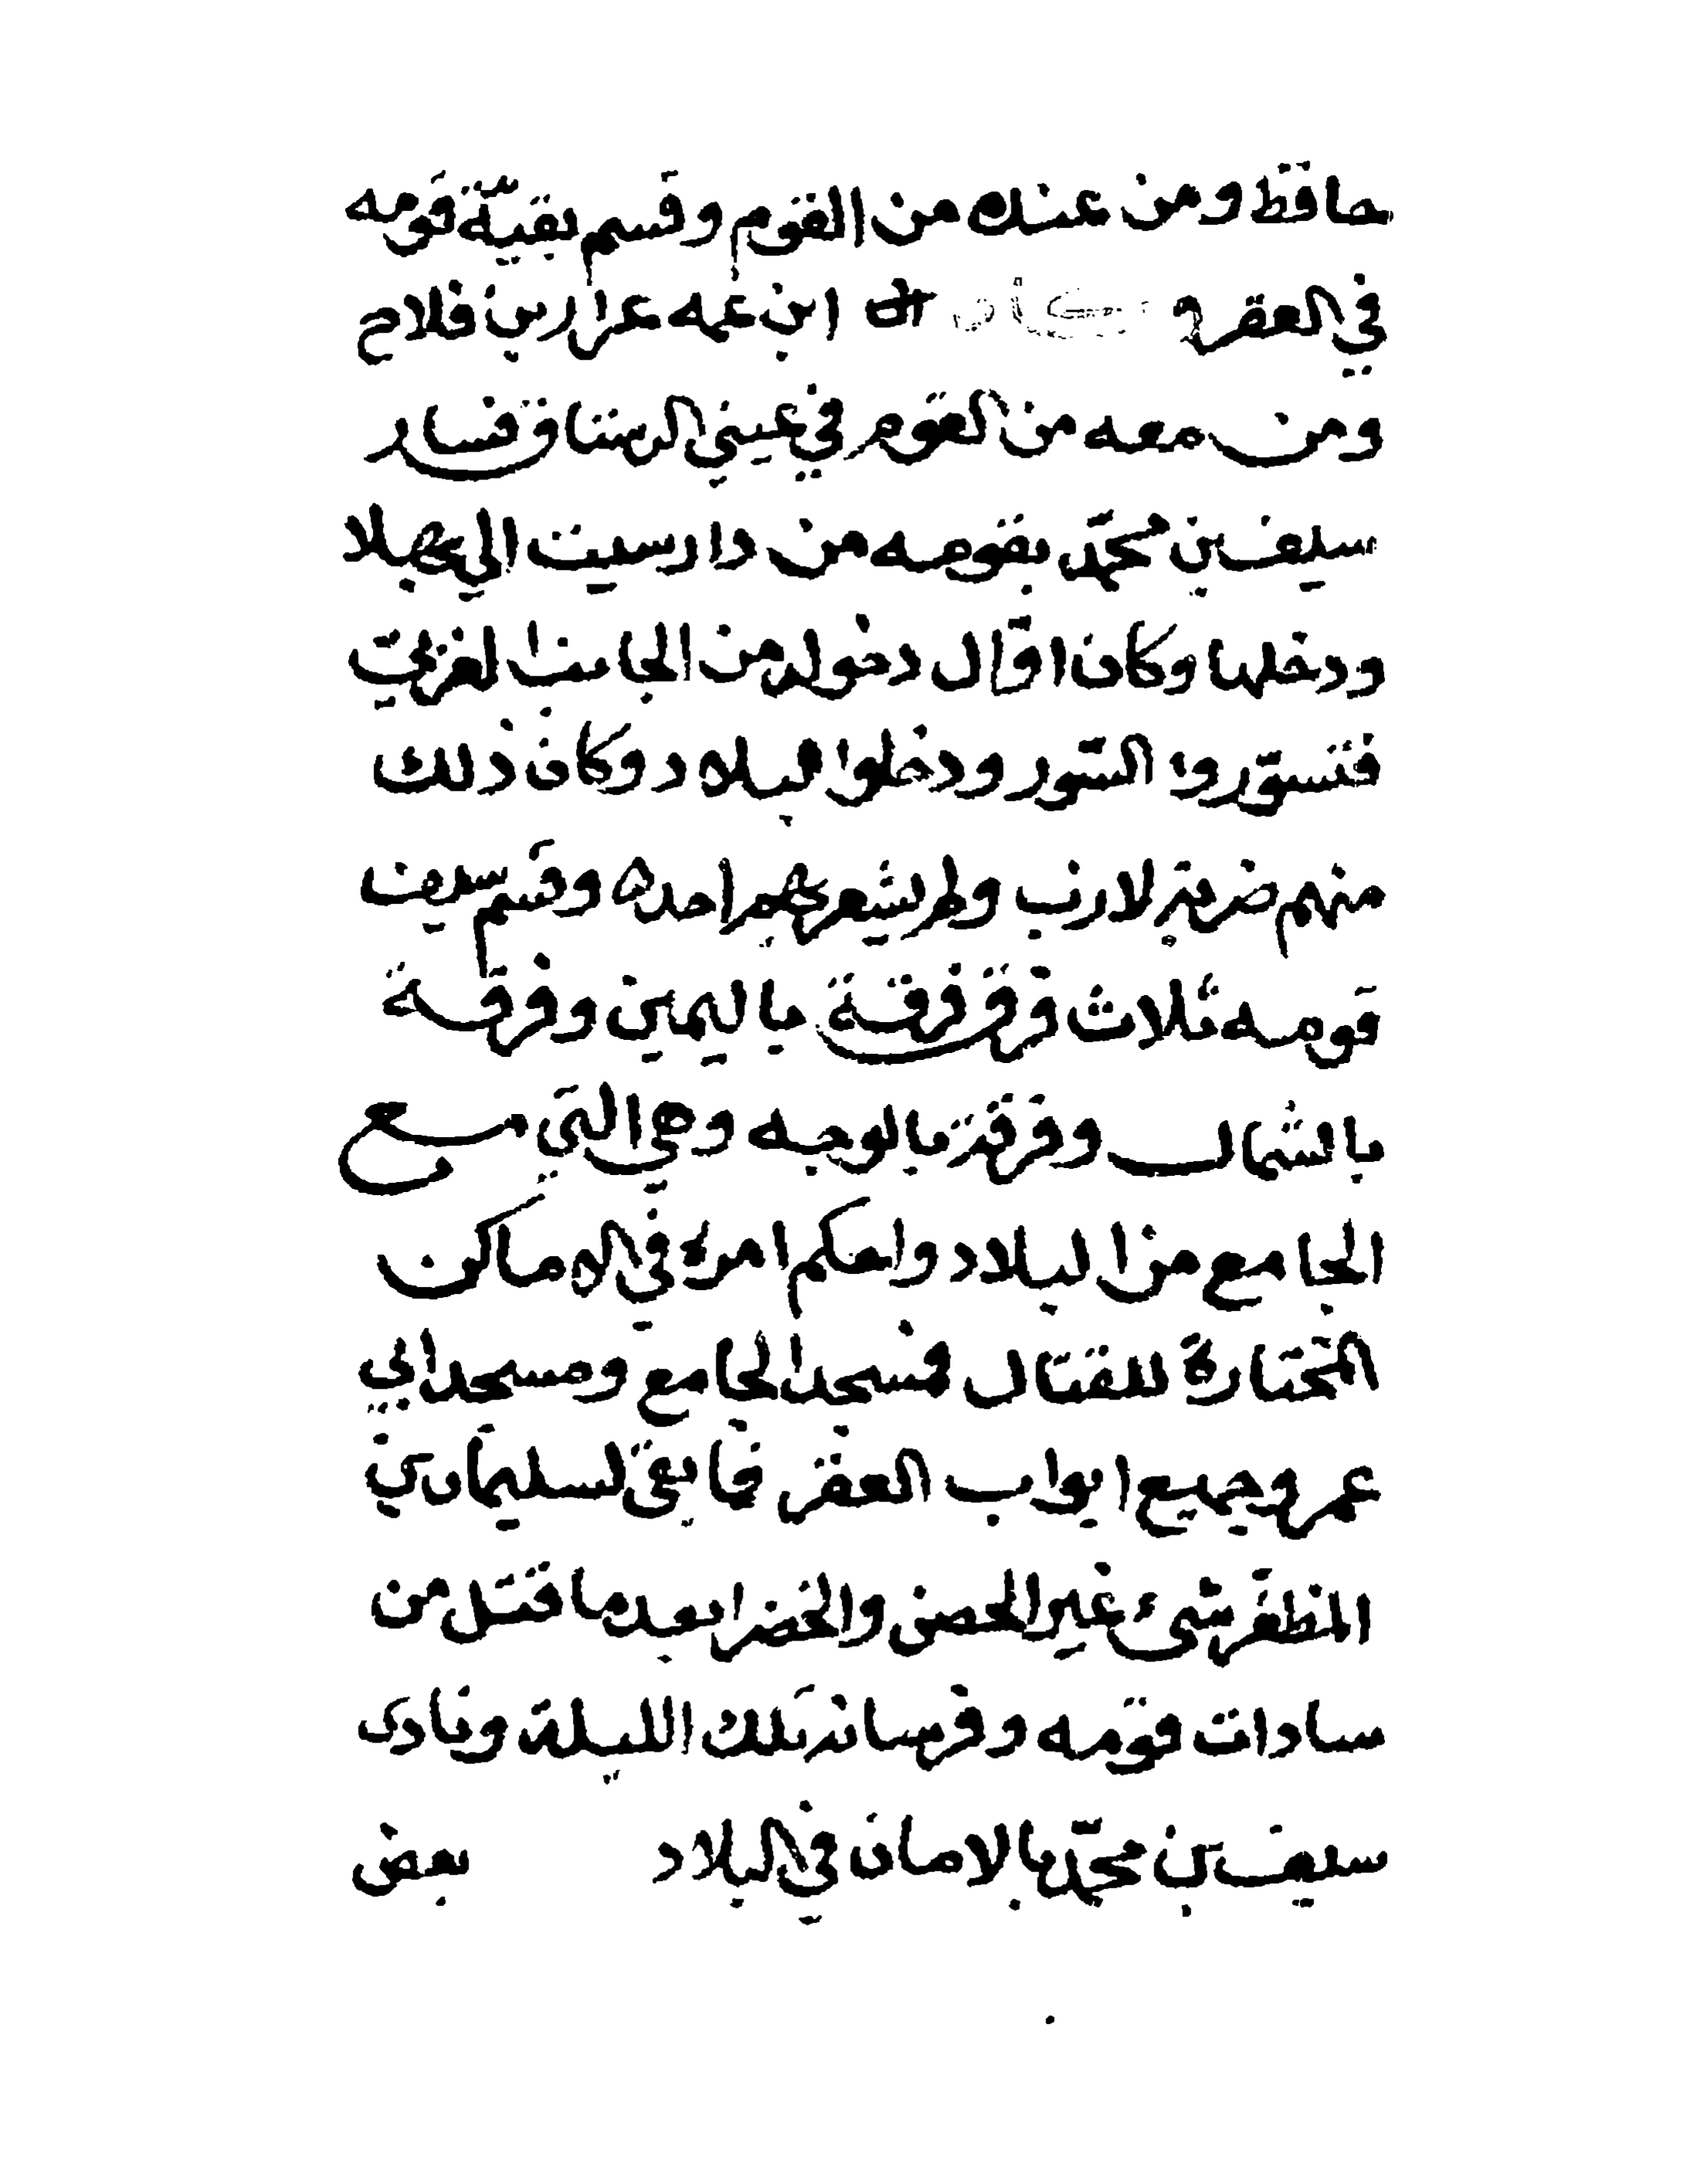 حافظ ومن عنده من القوم وقسم بقيّة قومه
في العقر و ابن عمه عرار بن فلاح
ومن معه من القوم في عيني الرستاق فسار
سيف بن محمّد بقومه من دارسيت الي بهلا
ودخلها وكان اوّل دخوله من الجانب الغربي
فتسوّروا السّور ودخلوا البلاد وكان ذلك
منهم ضربة لازب ولم يشعر بهم احد وقسم سيف
قومه ثلاث فرق فرقة باليمين وفرقة
بالشمال وفرقة بالوجه وهي التي مع
الجامع من البلاد واحكم امره في الاماكن
المختارة للقتال فمسجد الجامع ومسجد ابي
عمر وجميع ابواب العقر فما بقي لسليمان بن
المظفر شيء غير الحصن والخضرا بعد ما قتل من
سادات قومه وفرسانه تلك الليلة ونادى
سيف بن محمّد بالامان في البلاد بعض